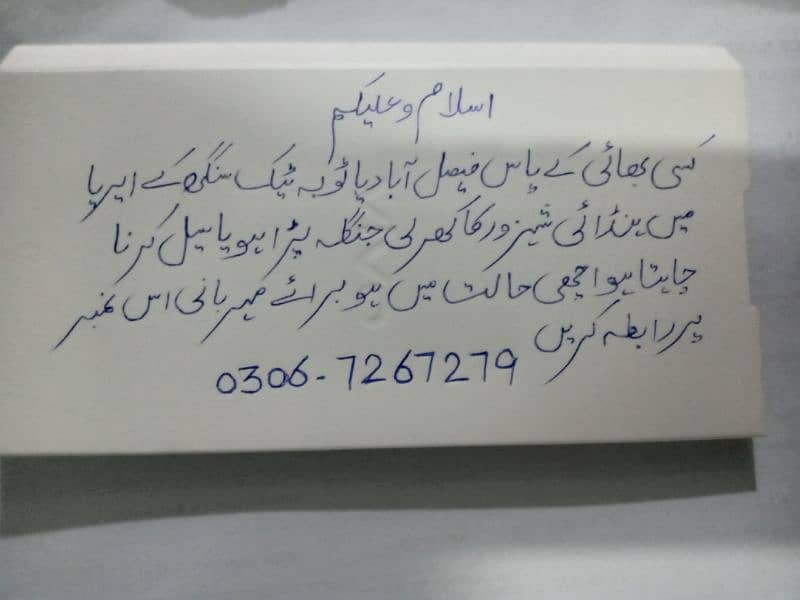 اسلام وعلیکم
کسی بھائی کے پاس فیصل آباد یا ٹوبہ ٹیک سنگھ کے ایریا
میں ہنڈائی شہزور کا کھرلی جنگلہ پڑا ہو یا سیل کرنا
چاہتا ہو اچھی حالت میں ہو برائے مہربانی اس نمبر
پر رابطہ کریں
0306-7267279